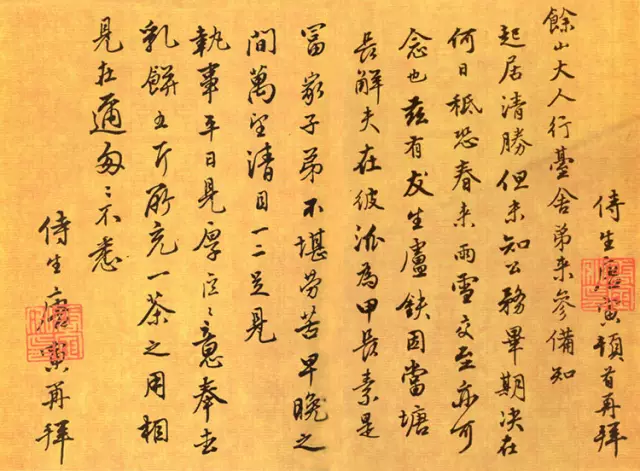 侍生唐寅頓首再拜
餘山大人行臺舍弟来參備知
起居清勝但未知公務畢期决在
何日秪恐春来雨雪交至亦可
念也兹有友生盧鈇因當塘
長解夫在彼派為甲長素是
富家子弟不堪劳苦早晚之
間萬望清目一二足見
執事平日見厚區〻意奉去
乳餅五斤所充一茶之用相
見在邇匆〻不悉
侍生唐寅再拜